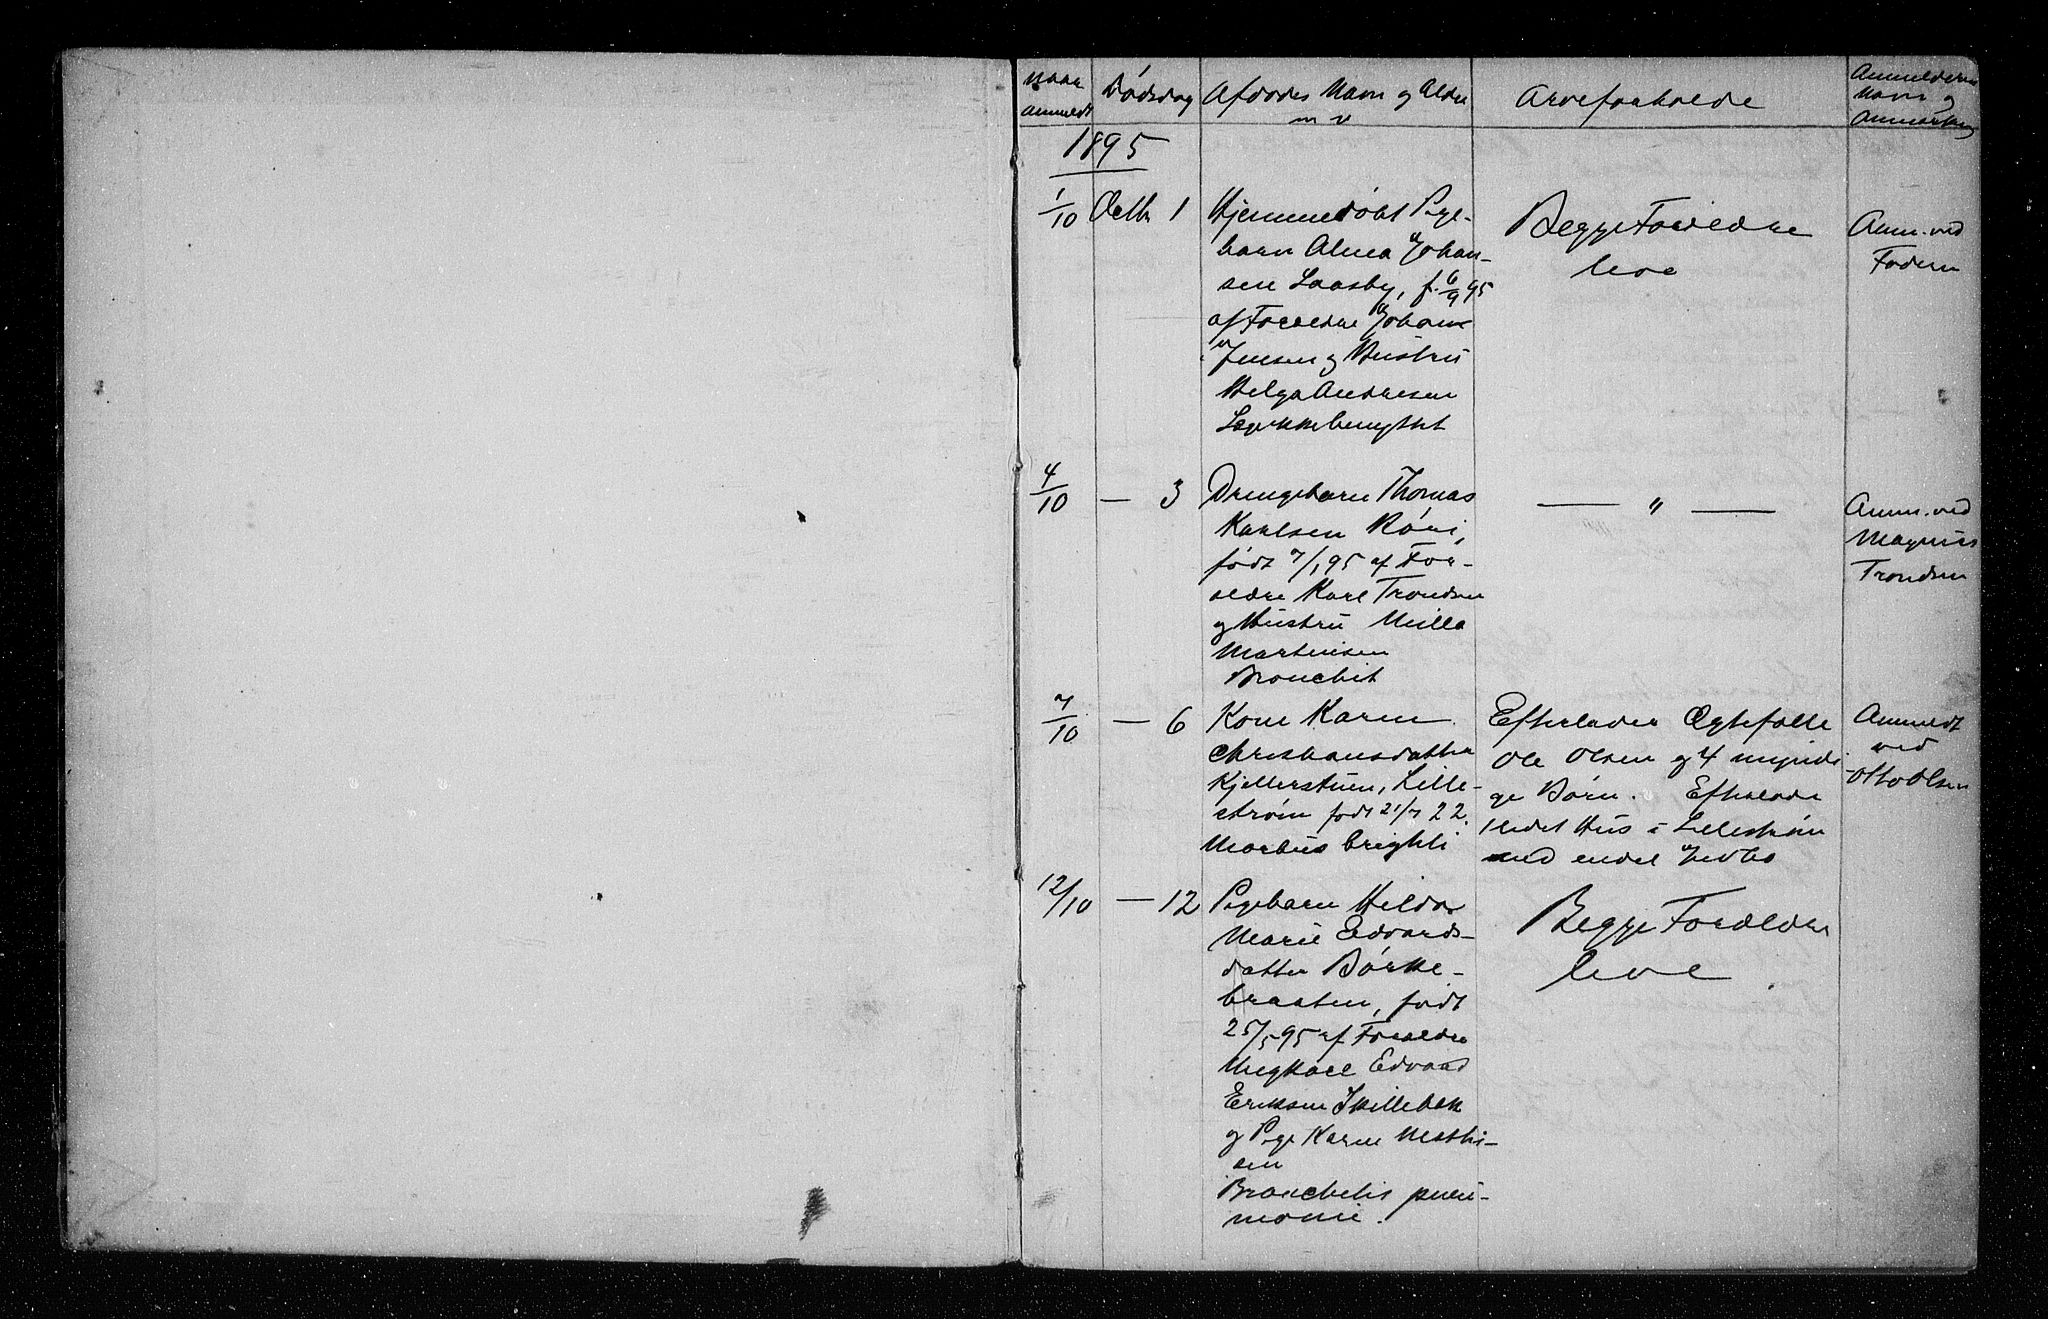 Naar anmeldt
Dødsdag
Afdødes Navn og Alder
m v
Arveforholde
Anmelderens Navn og Anmærkning
1895
1/10
Octbr 1
Hjemmedøbt Pige-
barn Alma Johan-
sen Laasby, f. 6/9 95
af Forældre Johan
Jensen og Hustru
Helga Andresen
Begge Forældre
leve
Anm. ved
Faderen
4/10
— 3
Drengebarn Thomas
Karlsen
født 7/1 95 af For-
ældre Karl Trondsen
og Hustru Milla
Martinsen
Bronchit
— " —
Anm. ved
Magnus
Trondsen
7/10
— 6
Kone Karen
Christiansdatter
Kjellerstuen, Lille-
strøm født 21/7 22.
Morbus brighti
Efterlader Ægtefælle
Ole Olsen og 4 myndi
ge Børn. Efterlader
lidet Hus i Lillestrøm
med endel Indbo
Anmeldt
ved
Otto Olsen
12/10
— 12
Pigebarn Hilda
Marie Edvards-
datter Børke-
braaten, født
25/5 95 af Forældre
Ungkarl Edvard
Eriksen Skillebek
og Pige Karen Mathi-
sen
Bronchitis pneu-
monie.
Begge Forældre
leve